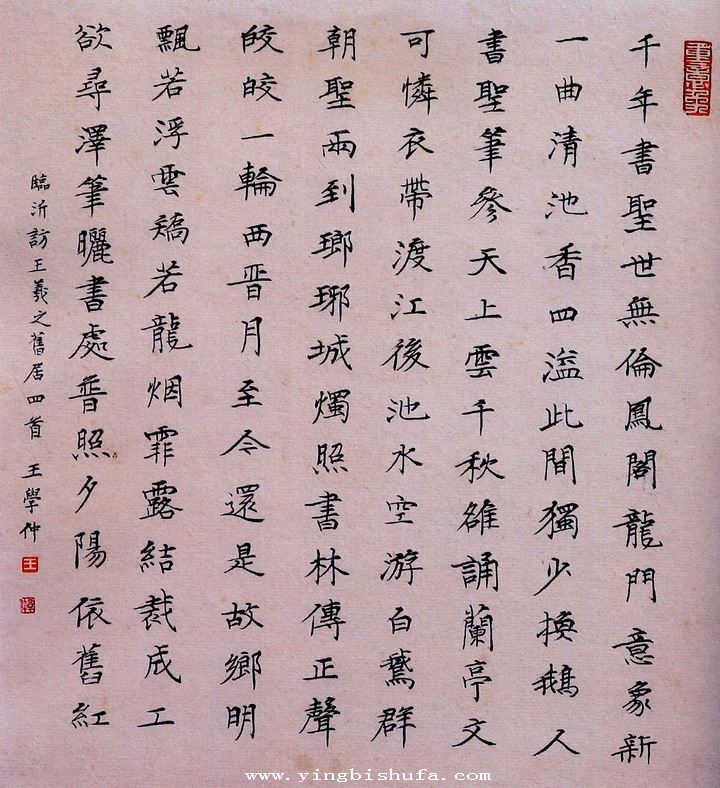 千年書聖世無倫鳳閣龍門意象新
一曲清池香四溢此間獨少換鵝人
書聖筆參天上雲千秋雒誦蘭亭文
可憐衣帶渡江後池水空游白鵞群
朝聖兩到瑯琊城燭照書林傳正聲
皎皎一輪西晋月至今還是故鄉明
飄若浮雲矯若龍烟霏露結裁成工
欲尋澤筆曬書處普照夕陽依舊紅
臨沂訪王羲之舊居四首 王學仲
王
www.yingbishufa.com